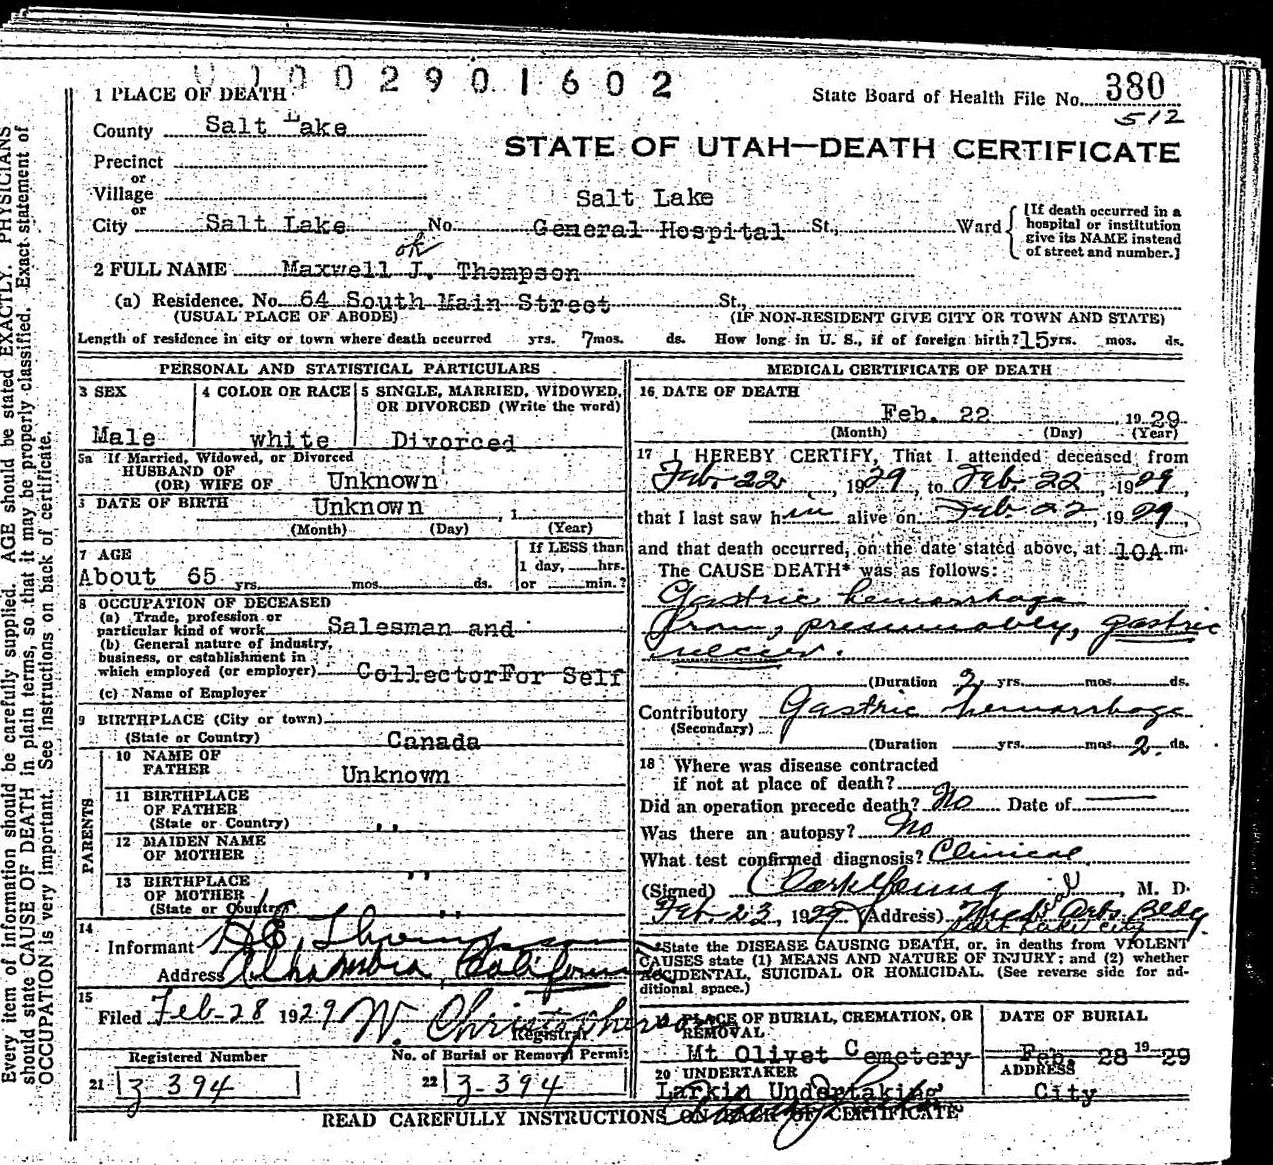 0 1 0 0 2 9 0 1 6 0 2
1 PLACE OF DEATH
State Board of Health File No. 380
512
County Salt Lake
STATE OF UTAH—DEATH CERTIFICATE
Precinct
or
Village
or
Salt Lake
City Salt Lake No. General Hospital St., Ward
[If death occurred in a
hospital or institution
give its NAME instead
of street and number.]
ok
2 FULL NAME Maxwell J. Thompson
(a) Residence. No. 64 South Main Street St.,
(USUAL PLACE OF ABODE) (IF NON-RESIDENT GIVE CITY OR TOWN AND STATE)
Length of residence in city or town where death occurred yrs. 7 mos. ds. How long in U. S., if of foreign birth? 15 yrs. mos. ds.
PERSONAL AND STATISTICAL PARTICULARS
3 SEX
Male
4 COLOR OR RACE
white
5 SINGLE, MARRIED, WIDOWED,
OR DIVORCED (Write the word)
Divorced
5a If Married, Widowed, or Divorced
HUSBAND OF
(OR) WIFE OF Unknown
6 DATE OF BIRTH Unknown , 1
(Month) (Day) (Year)
7 AGE
About 65 yrs. mos. ds.
If LESS than
1 day, hrs.
or min.?
8 OCCUPATION OF DECEASED
(a) Trade, profession or
particular kind of work Salesman and
(b) General nature of industry,
business, or establishment in
which employed (or employer) Collector For Self
(c) Name of Employer
9 BIRTHPLACE (City or town)
(State or Country) Canada
PARENTS
10 NAME OF
FATHER Unknown
11 BIRTHPLACE
OF FATHER
(State or Country) ,,
12 MAIDEN NAME
OF MOTHER ,,
13 BIRTHPLACE
OF MOTHER
(State or Country) ,,
14
Informant H.E. Thompson
Address Alhambra, California
15
Filed Feb-28 1929 W. Christopherson
Registrar
Registered Number
21 3 394
No. of Burial or Removal Permit
22 3-394
MEDICAL CERTIFICATE OF DEATH
16 DATE OF DEATH
Feb. 22 1929
(Month) (Day) (Year)
17 I HEREBY CERTIFY, That I attended deceased from
Feb-22, 1929, to Feb 22, 1929,
that I last saw him alive on Feb 22, 1929,
and that death occurred, on the date stated above, at 10A m.
The CAUSE DEATH* was as follows:
Gastric hemorrhage
from, presumably, gastric
ulcer.
(Duration 2 yrs. mos. ds.
Contributory Gastric hemorrhage
(Secondary)
(Duration yrs. mos. 2 ds.
18 Where was disease contracted
if not at place of death?
Did an operation precede death? No Date of
Was there an autopsy? No
What test confirmed diagnosis? Clinical
(Signed) Clark Young, M. D.
Feb. 23, 1929 (Address) Med. Arts Bldg.
Salt Lake City
*State the DISEASE CAUSING DEATH, or, in deaths from VIOLENT
CAUSES state (1) MEANS AND NATURE OF INJURY; and (2) whether
ACCIDENTAL, SUICIDAL OR HOMICIDAL. (See reverse side for ad-
ditional space.)
19 PLACE OF BURIAL, CREMATION, OR
REMOVAL
Mt Olivet Cemetery
DATE OF BURIAL
Feb. 28 1929
20 UNDERTAKER
Larkin Undertaking
ADDRESS
City
READ CAREFULLY INSTRUCTIONS ON BACK OF CERTIFICATE
Every item of information should be carefully supplied. AGE should be stated EXACTLY. PHYSICIANS
should state CAUSE OF DEATH in plain terms, so that it may be properly classified. Exact statement of
OCCUPATION is very important. See instructions on back of certificate.